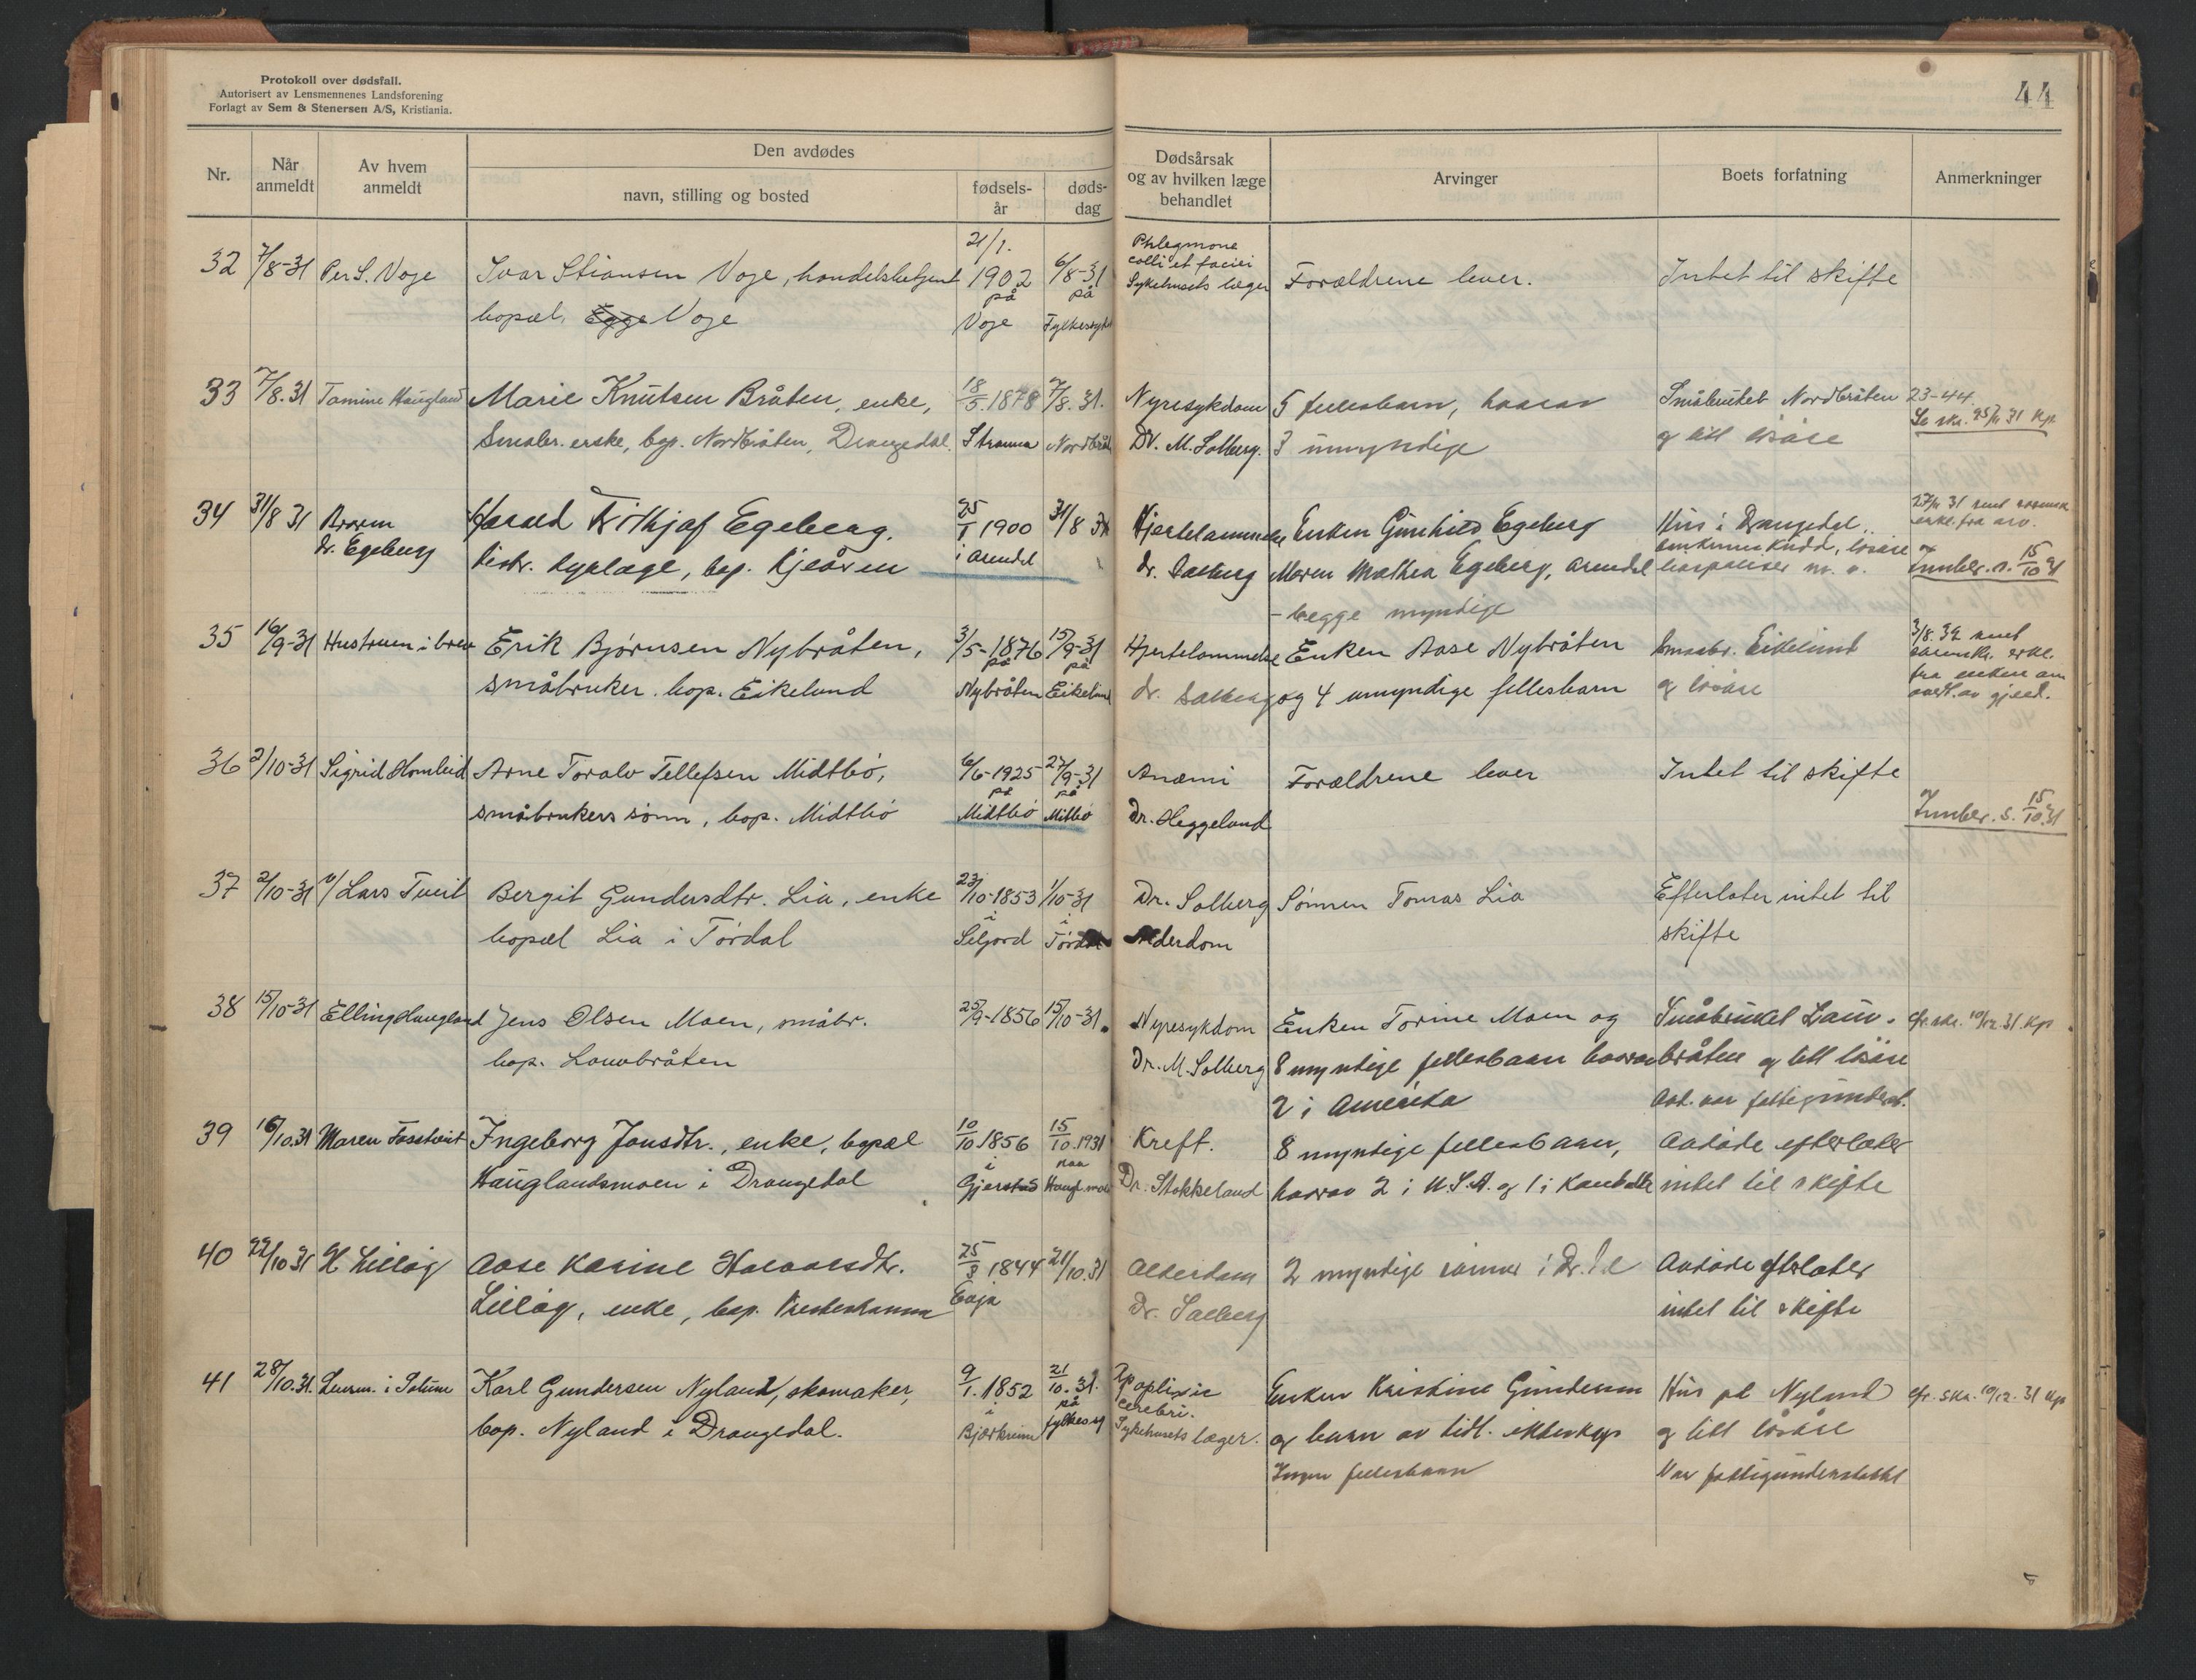 Protokoll over dødsfall.
Autorisert av Lensmennenes Landsforening
Forlagt av Sem & Stenersen A/S, Kristiania.
44
Nr.
Når anmeldt
Av hvem anmeldt
Den avdødes
navn, stilling og bosted
fødsels-år
døds-dag
Dødsårsak og av hvilken læge behandlet
Arvinger
Boets forfatning
Anmerkninger
32 7/8-31 Per S. Voje Ivar Stiansen Voje, handelsbetjent 21/1. 1902 6/8-31 Phlegmone colli et faciei Forældrene lever. Intet til skifte
bopæl, Voje på Voje på Fylkessyk Sykehusets læger
33 7/8.31 Tomine Haugland Marie Knutsen Bråten, enke, 18/5.1878 7/8.31. Nyresykdom 5 fellesbarn, hvorav Småbruket Nordbråten 23-44.
bop. Nordbråten, Drangedal. Strauma Nordbråt Dr. M. Solberg. 3 umyndige og litt løsøre 31 Kp.
34 31/8 31 Broren Harald Frithjof Egeberg. 25/1 1900 31/8 31 Hjertelammelse Enken Gunhild Egeberg Hus i Drangedal.
dr. Egeberg distr. dyrlæge, bop. Kjeåsen i Arendal dr. Solberg Maren Mathea Egeberg, Arendal løsøre 15/10 31
- begge myndige
35 16/9-31 Hustruen i brev Erik Bjørnsen Nybråten, 3/5-1876 15/9-31 Hjertelammelse Enken Aase Nybråten Småbr. Eikelund 3/8.32 sendt
småbruker. bop. Eikelund på Nybråten på Eikelund dr. Solberg og 4 umyndige fellesbarn og løsøre fra enken om overt. av gjeld.
36 2/10-31 Sigrid Homleid Arne Toralv Tellefsen Midtbø, 6/6-1925 27/9-31 Anæmi Forældrene lever Intet til skifte
småbrukers sønn, bop. Midtbø på Midtbø på Mitbø Dr. Heggeland 15/10.31
37 2/10-31 v/ Lars Tveit Bergit Gundersdtr. Lia, enke 23/10-1853 1/10-31 Dr. Solberg Sønnen Tomas Lia Efterlater intet til
bopæl Lia i Tørdal i Seljord i Tørdal Alderdom skifte
38 15/10-31 Elling Haugland Jens Olsen Moen, småbr. 25/9-1856 15/10-31. Nyresykdom Enken Torine Moen og Småbruket Lauv- cfr. skr. 10/12.31. Kp
bop. Lauvbråten Dr. M. Solberg 8 myndige fellesbarn hvorav bråten og litt løsøre
2 i Amerika Avd. var fattigunderst.
39 16/10.31 Maren Fosstveit Ingeborg Jonsdtr., enke, bopæl 10/10 1856 15/10.1931 Kreft. 8 myndige fellesbarn, Avdøde efterlater
Hauglandsmoen i Drangedal i Gjerstad paa Haugl.moen Dr. Stokkeland hvorav 2 i U.S.A. og 1 i intet til skifte
40 22/10 31 H. Lilløy Aase Karine Halvorsdtr. 25/3 1844 21/10.31 Alderdom 2 myndige sønner i Avdøde efterlater
Lilløy, enke, bop. Prestestranna Dr. Solberg intet til skifte
41 28/10.31. Lensm. i Solum Karl Gundersen Nyland, skomaker, 9/1.1852 21/10.31. Apoplexie cerebri. Enken Kristine Gundersen Hus på Nyland cfr. skr. 10/12. 31 Kp
bop. Nyland i Drangedal. i Bjerkreim på fylkessy Sykehusets læger. og barn av tidl. ekteskap og litt løsøre
Ingen fellesbarn Var fattigunderstøttet